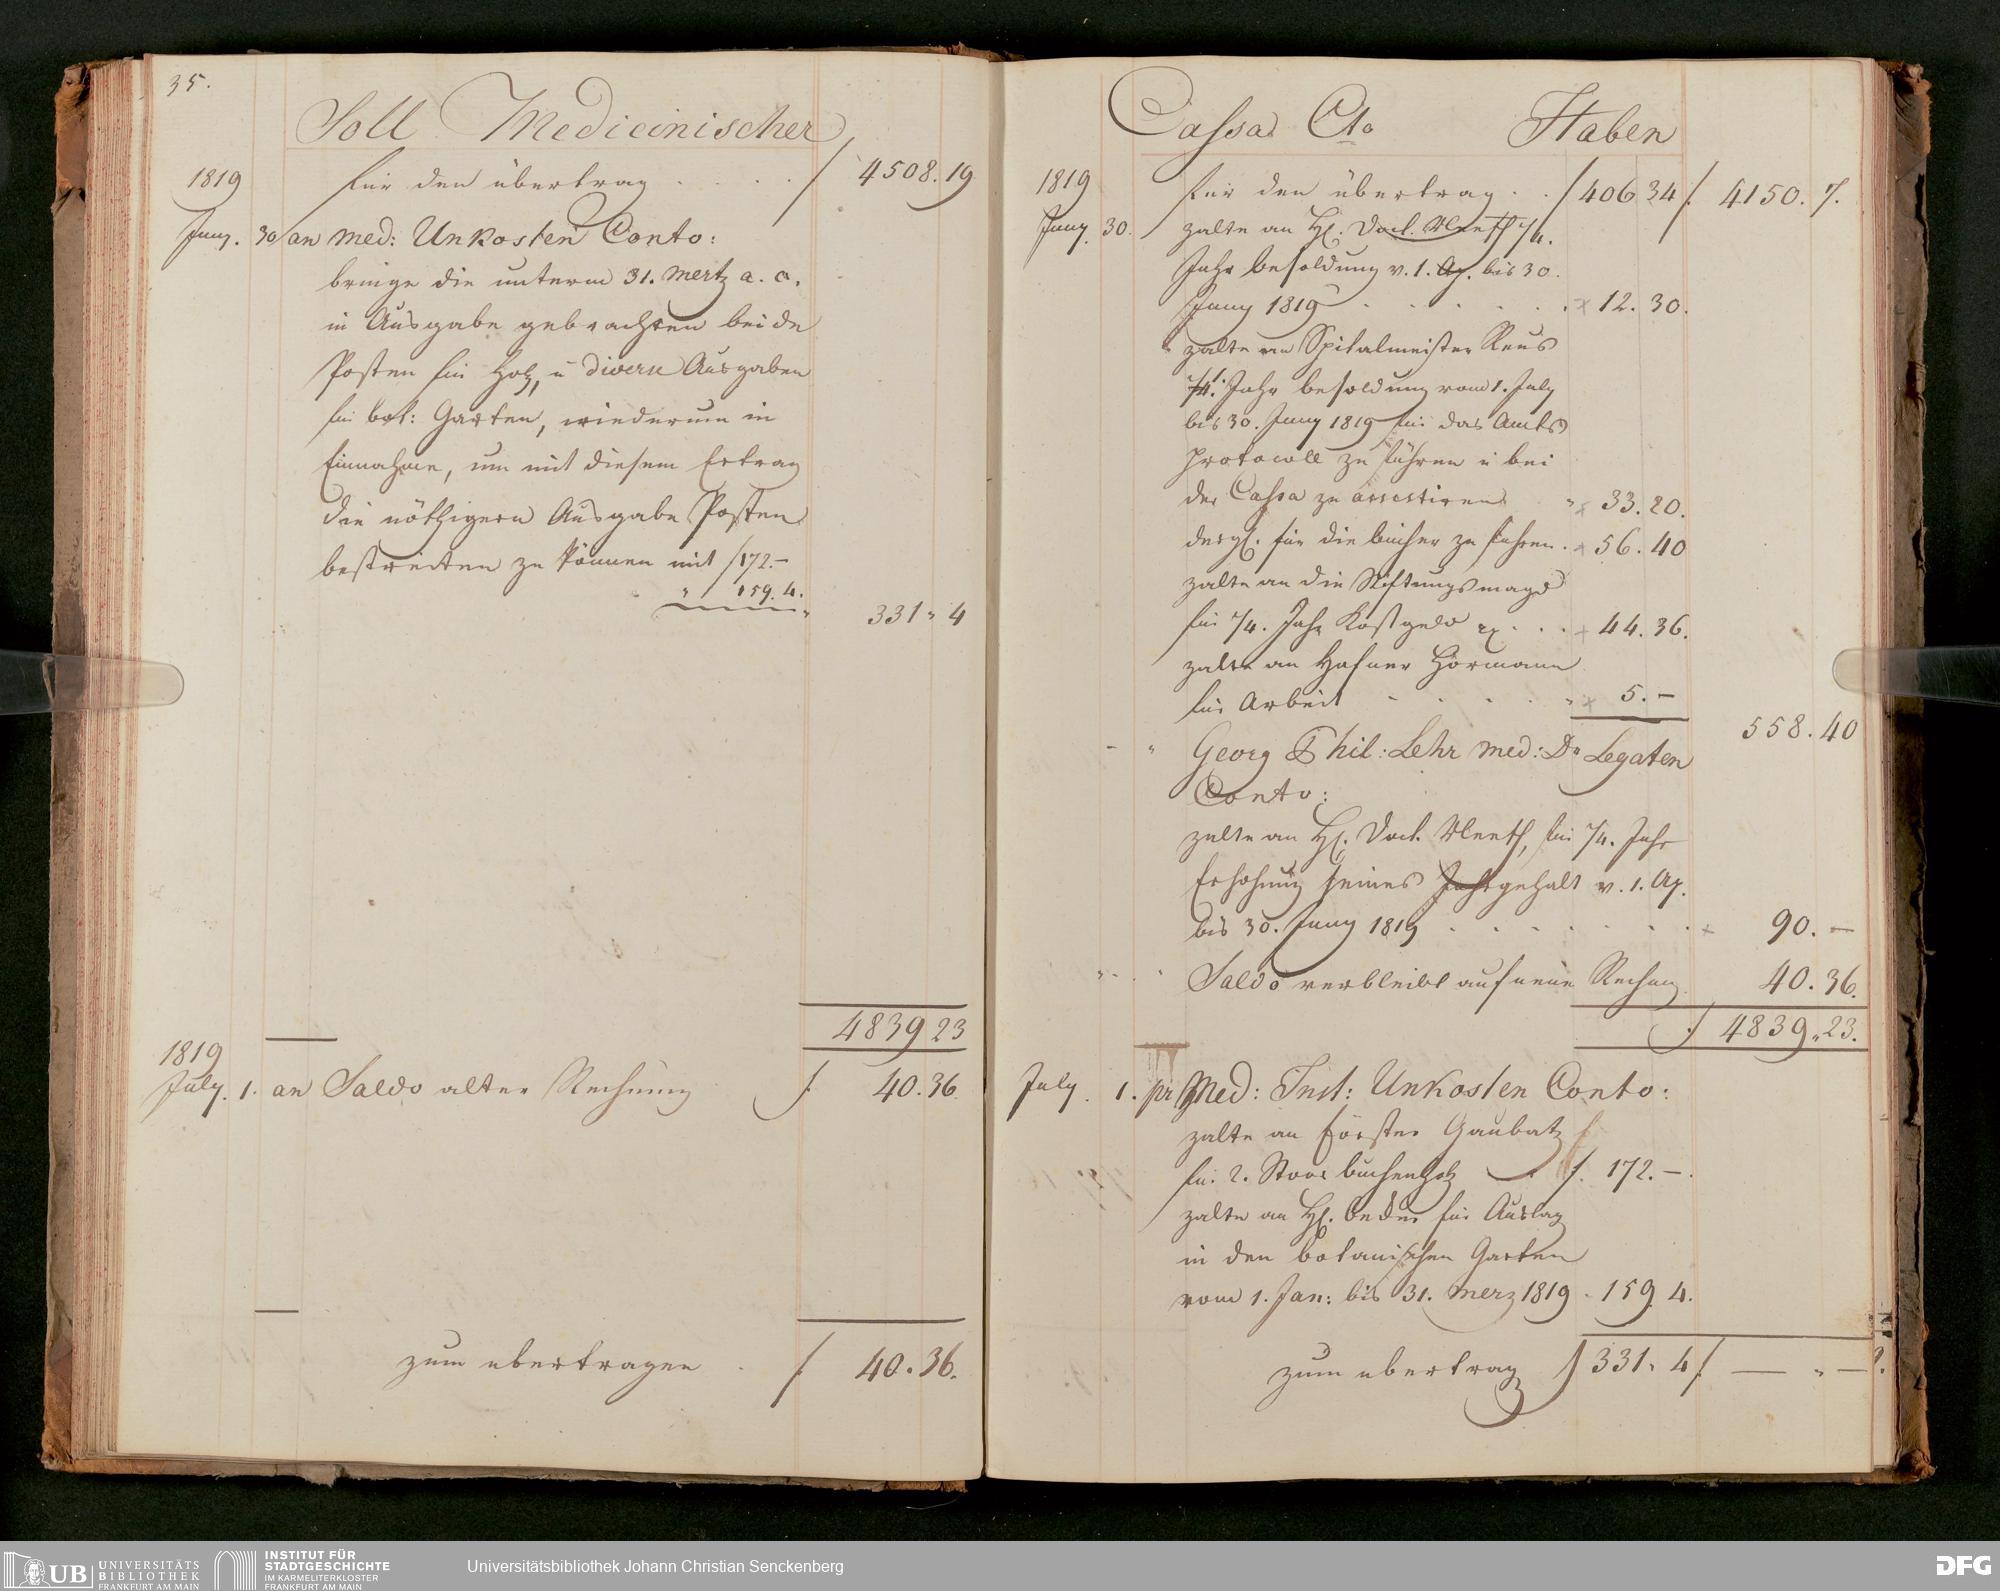 35.
Soll Medicinischer
1819 für den übertrag . . . . f. 4508.19
Juny. 30 an med: Unkosten Conto:
bringe die unterm 31. Mertz a. c.
in Ausgabe gebrachten beide
Posten für Holz, u diverse Ausgaben
für bot: Garten, wiederum in
Einnahme, um mit diesem Ertrag
die nöthigern Ausgabe Posten
bestreiten zu können mit f 172.–
" 159. 4.
331 " 4
4839 23
1819
July. 1. an Saldo alter Rechnung f. 40.36
zum ubertragen . f. 40.36.
Cassa Cto Haben
1819 für den übertrag . . f 406 34 f. 4150. 7.
Juny. 30. zalte an H. Doct. 1/4.
Jahr besoldung v. 1. Ap. bis 30.
Juny 1819 . . . . . x 12. 30.
zalte an Spitalmeister Reus
1/4. Jahr besoldung vom 1. July
bis 30. Juny 1819 für das Amts
protocoll zu führen u bei
der Cassa zu assistiren " x 33. 20.
desgl. für die bücher zu führen . x 56. 40
zalte an die Stiftungsmagd
für 1/4. Jahr Kostgeld . . . x 44. 36.
zalte an Hafner Hörmann
für Arbeit . . . . " x 5. –
558. 40
– " Georg Phil: Lehr med: Dr Legaten
Conto:
zalte an H. Doct. für 1/4. Jahr
Erhöhung seines Jahrgehalt v. 1. Ap.
bis 30. Juny 1819 . . . . . . . x 90. –
" . . Saldo verbleibt auf neue Rechung 40. 36.
f 4839 " 23.
July. 1. pr Med: Inst: Unkosten Conto:
zalte an förster Gaubatz
für 2. Stoos buchenholz f. 172. – .
zalte an H. Beder für Auslag
in den botanischen Garten
vom 1. Jan: bis 31. Merz 1819 . 159. 4.
zum ubertrag f 331 " 4 f. — " —
UB UNIVERSITÄTS
BIBLIOTHEK
FRANKFURT AM MAIN
INSTITUT FÜR
STADTGESCHICHTE
IM KARMELITERKLOSTER
FRANKFURT AM MAIN
Universitätsbibliothek Johann Christian Senckenberg
DFG